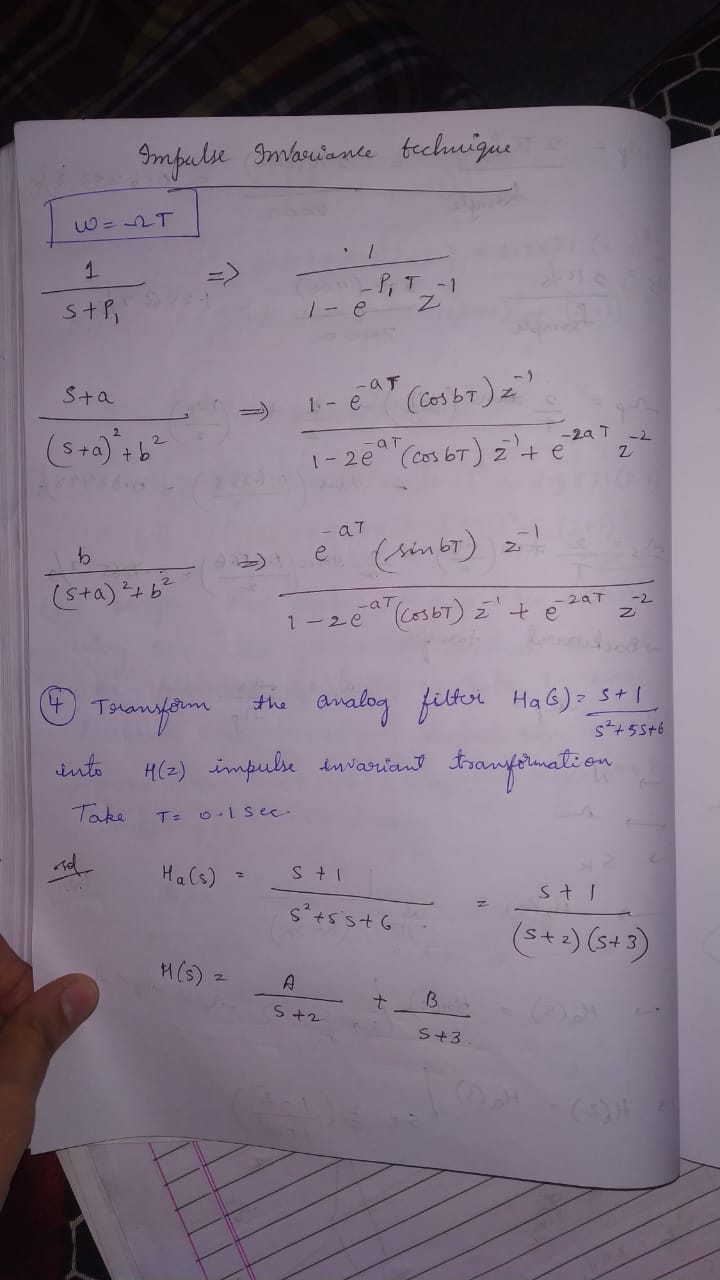 Impulse Invariance technique
ω = ΩT
1/(s+P₁) => 1/(1 - e^(-P₁T) z^(-1))
(s+a)/((s+a)²+b²) => (1 - e^(-aT) (cos bT) z^(-1))/(1 - 2e^(-aT) (cos bT) z^(-1) + e^(-2aT) z^(-2))
b/((s+a)²+b²) => (e^(-aT) (sin bT) z^(-1))/(1 - 2e^(-aT) (cos bT) z^(-1) + e^(-2aT) z^(-2))
④ Transform the analog filter Ha(s) = (s+1)/(s²+5s+6)
into H(z) impulse invariant transformation
Take T= 0.1 sec.
sol Ha(s) = (s+1)/(s²+5s+6) = (s+1)/((s+2)(s+3))
H(s) = A/(s+2) + B/(s+3)